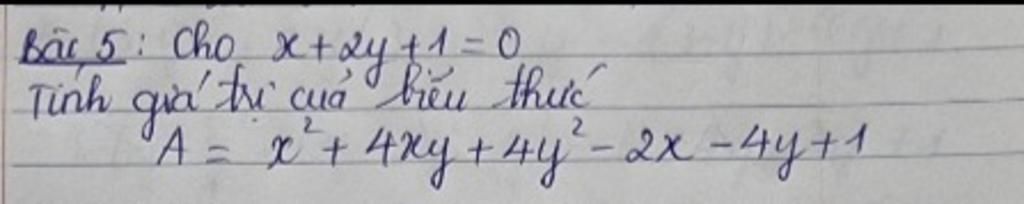 Bài 5: Cho x+2y+1=0
Tính giá trị của biểu thức
A = x² + 4xy + 4y² - 2x - 4y + 1